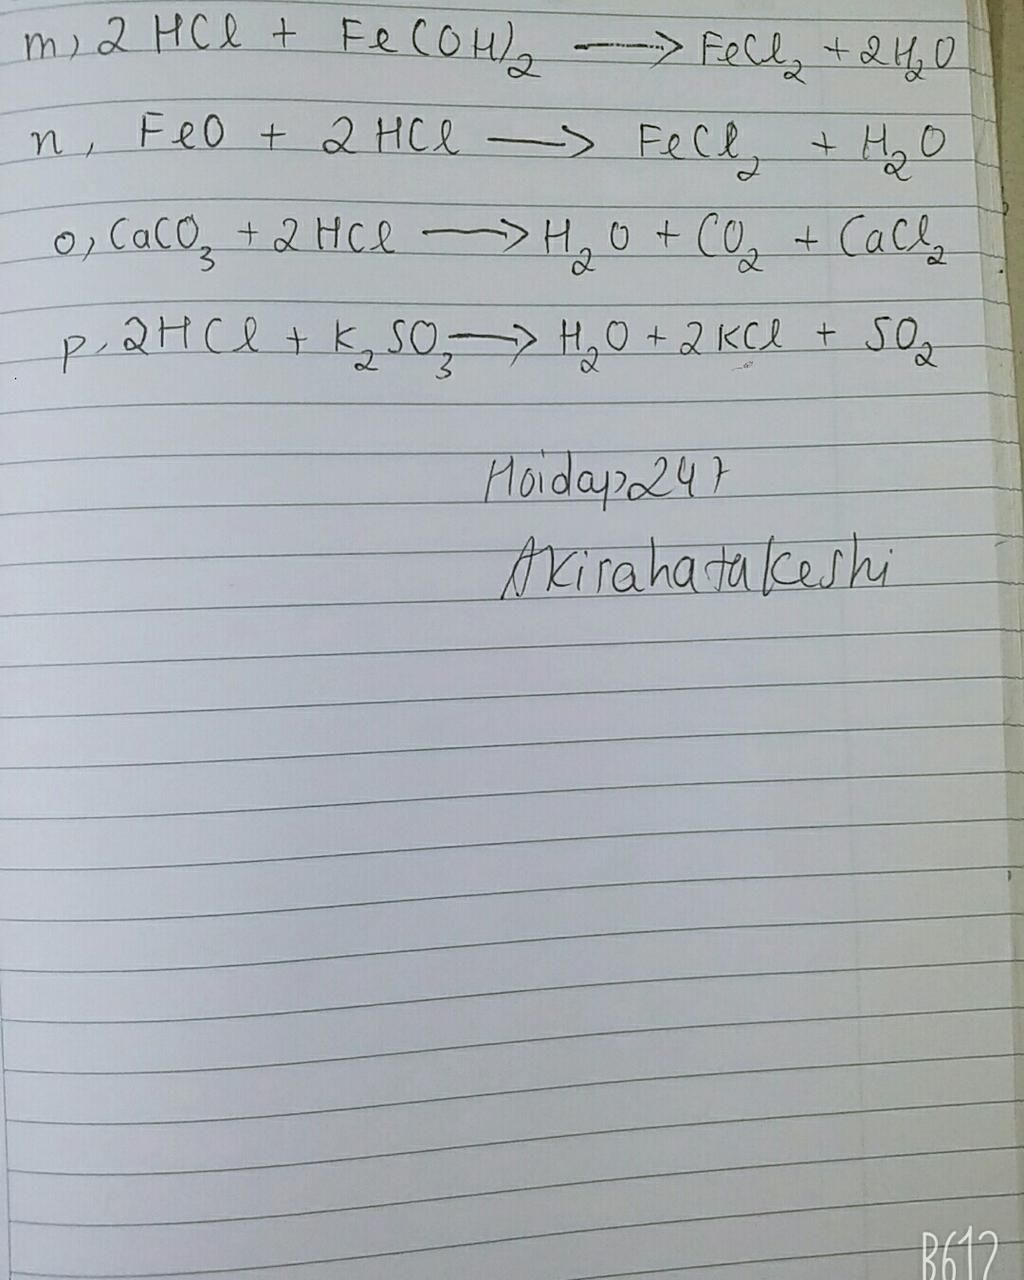 m, 2 HCl + Fe(OH)₂ ⟶ FeCl₂ + 2H₂O
n, FeO + 2 HCl ⟶ FeCl₂ + H₂O
o, CaCO₃ + 2 HCl ⟶ H₂O + CO₂ + CaCl₂
p, 2HCl + K₂SO₃ ⟶ H₂O + 2KCl + SO₂
Hoidap247
Akirahatakeshi
B612